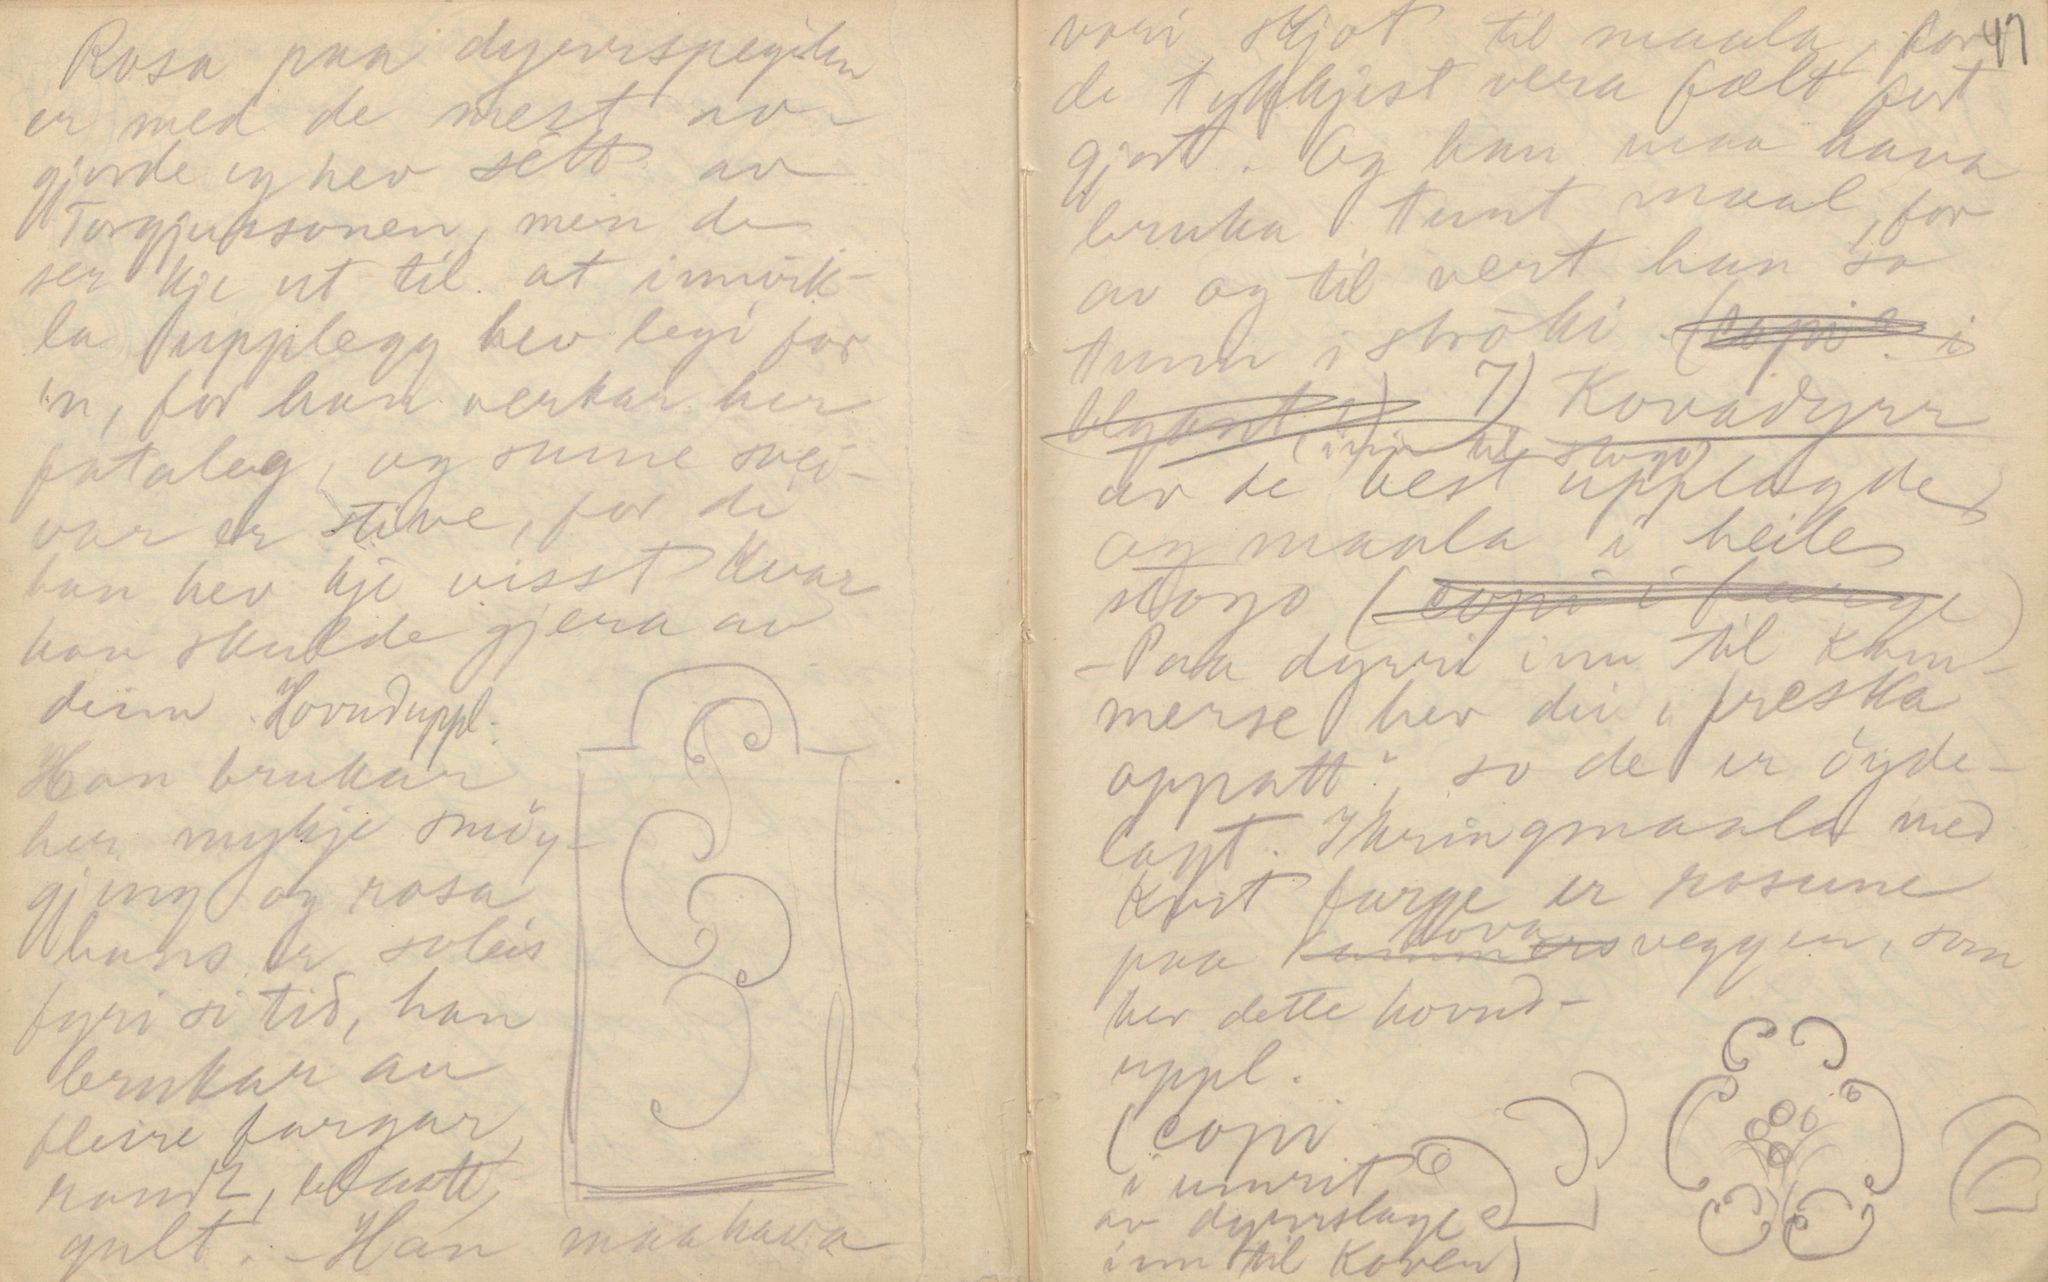 Rosa paa dyrrspegilen
er med de mest av-
gjorde eg hev sétt av
Torgjussonen, men de
ser kje ut til at innvik-
la upplegg hev legi for
'n, for han verkar her
fataleg, og sume svei-
var er stive, for de
han hev kje visst kvar
han skulde gjera av
deim. Hovuduppl.
Han brukar
her mykje smöy-
gjing og rosa
hans er soleis
fyri si tid, han
brukar au
fleire fargar,
raudt, blaatt,
gult. - Han maa hava
vori skjot til maala, for
de tykkjest vera fælt fort
gjort. Og han maa hava
bruka tunt maal, for
av og til vert han so
tunn i ströki (copi i
blyant) 7) Kovadyrr
(inn til stogo)
av de best upplagde
og maala i heile
stogo (copi i farge)
- Paa dyrri inn til kam-
merse hev dei "freska
oppatt", so de er öyde-
lagt. Ikringmaala med
kvit farge er rosune
paa kammers veggen, som
kova
hev dette hovud-
uppl.
(copi
i umrit
av dyrrslage
inn til koven)